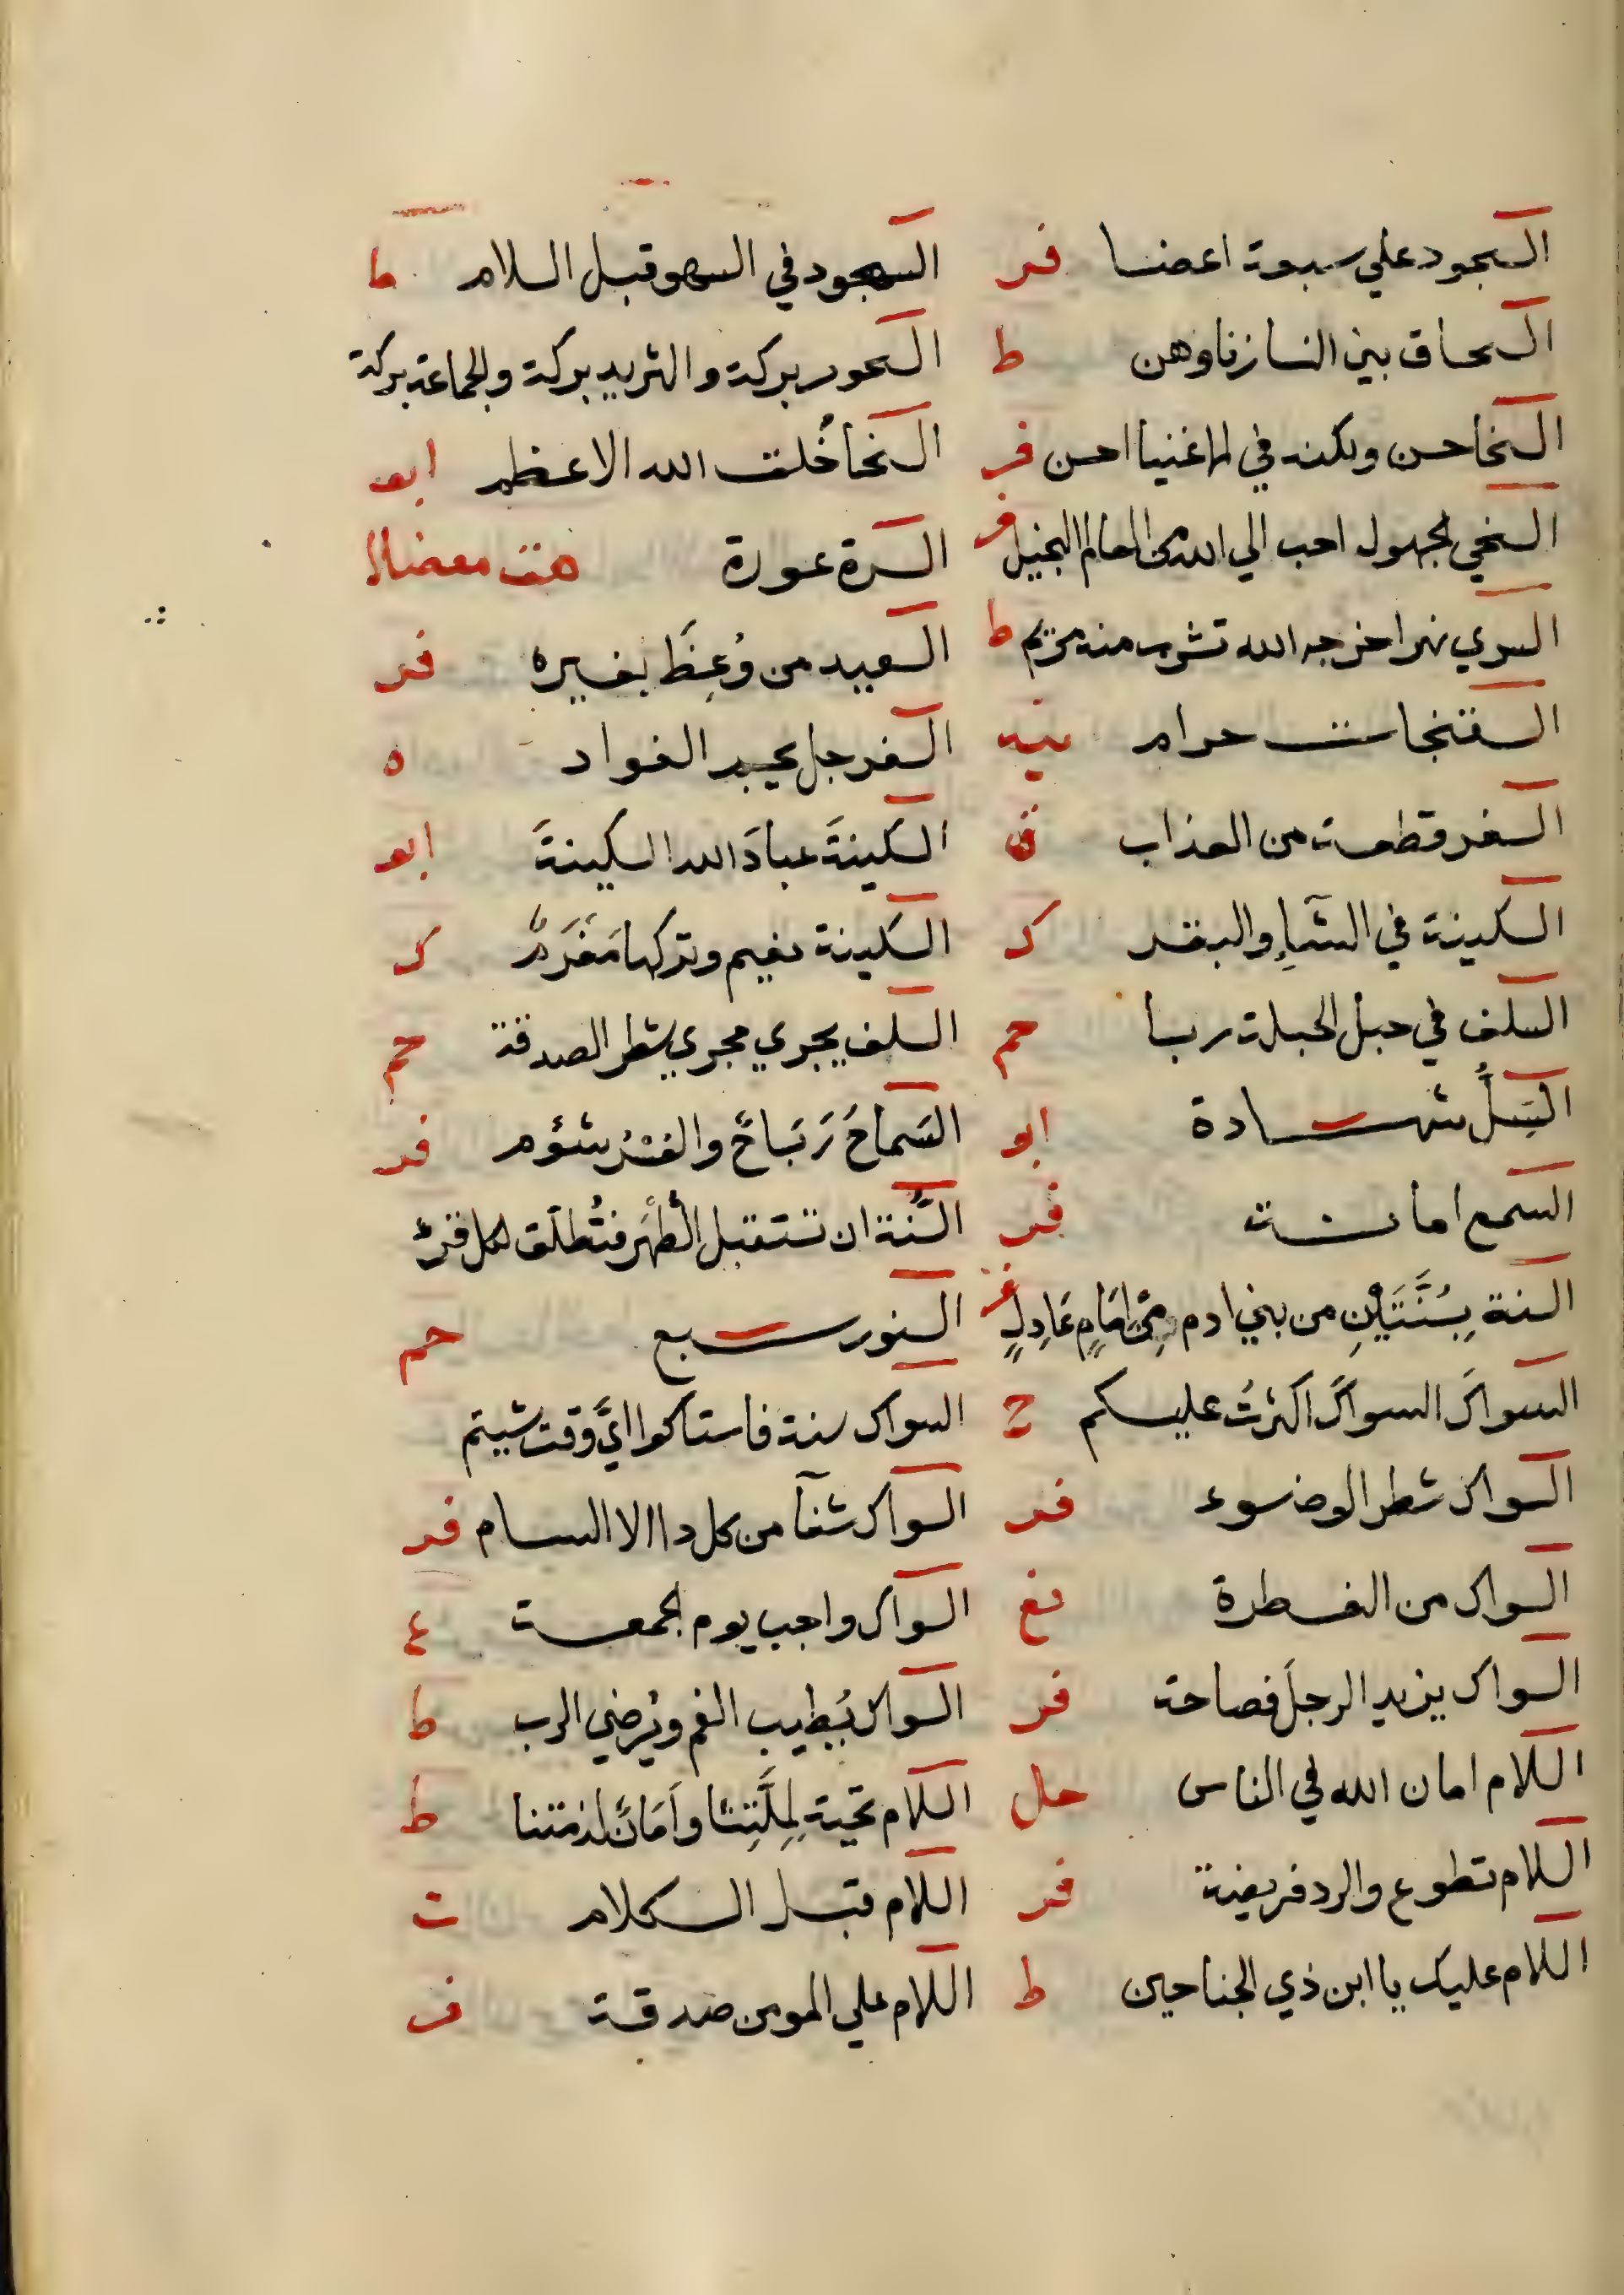 السجود علي سبعة اعضا فر السجود في السهو قبل السلام ط
السحاق بين النسا زنا وهن ط السحور بركة والثريد بركة والجماعة بركة
السخا حسن ولكنه في الاغنيا احسن فر السخا خُلق الله الاعظم ابو
السخي الجهول احب الي الله من العالم البخيل فر السرة عورة هق معضلا
السري نهر اخرجه الله تشرب منه مريم ط السعيد من وُعِظَ بغيره فر
السفتجات حرام السفرجل يجبر الفواد ه
السفر قطعة من العذاب ق السكينةَ عبادَ الله السكينةَ ابو
السكينة في الشاءِ والبقر ك السكينة مغنم وتركها مَغْرَمٌ ك
السلف في حبل الحبلة ربا حم السلف يجري مجري شطر الصدقة حم
السِّلُّ شهادة ابو السَماحُ رَبَاحٌ والعُسْرُ شؤم فر
السمع امانة فر السُّنة ان تستقبل الطُهْرَ فتُطلّق لكل قرءٍ
السنة بِسُنَّتَيْنِ من بني ادم من امَامٍ عَادِلٍ فر السنور سبع حم
السواكَ السواكَ اكثرتُ عليكم السواك سنة فاستاكوا ايَّ وقت شيتم
السواك شطر الوضوء فر السواك شفآ من كل دا الا السام فر
السواك من الفطرة نع السواك واجب يوم الجمعة
السواك يزيد الرجلَ فصاحة فر السواك يُطيب الفم ويُرضي الرب ط
السلام امان الله في الناس حل السلام تحية لِمِلَّتِنَا وأَمَانٌ لذمتنا ط
السلام تطوع والرد فريضة فر السلام قبل الكلام ت
السلام عليك يا ابن ذي الجناحين ط السلام علي المومن صدقة ف